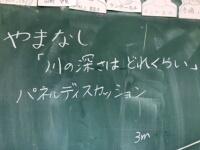 やまなし
「川の深さは どれくらい」
パネルディスカッション
3m